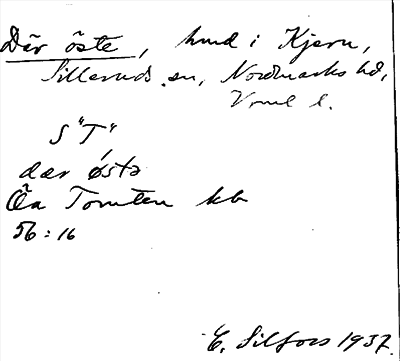 Där öste, hmd i Kjern,
Silleruds sn, Nordmarks hd,
Vrml l.
S "T"
dær østə
Öa Tomten kb
56:16
E. Silfors 1937.